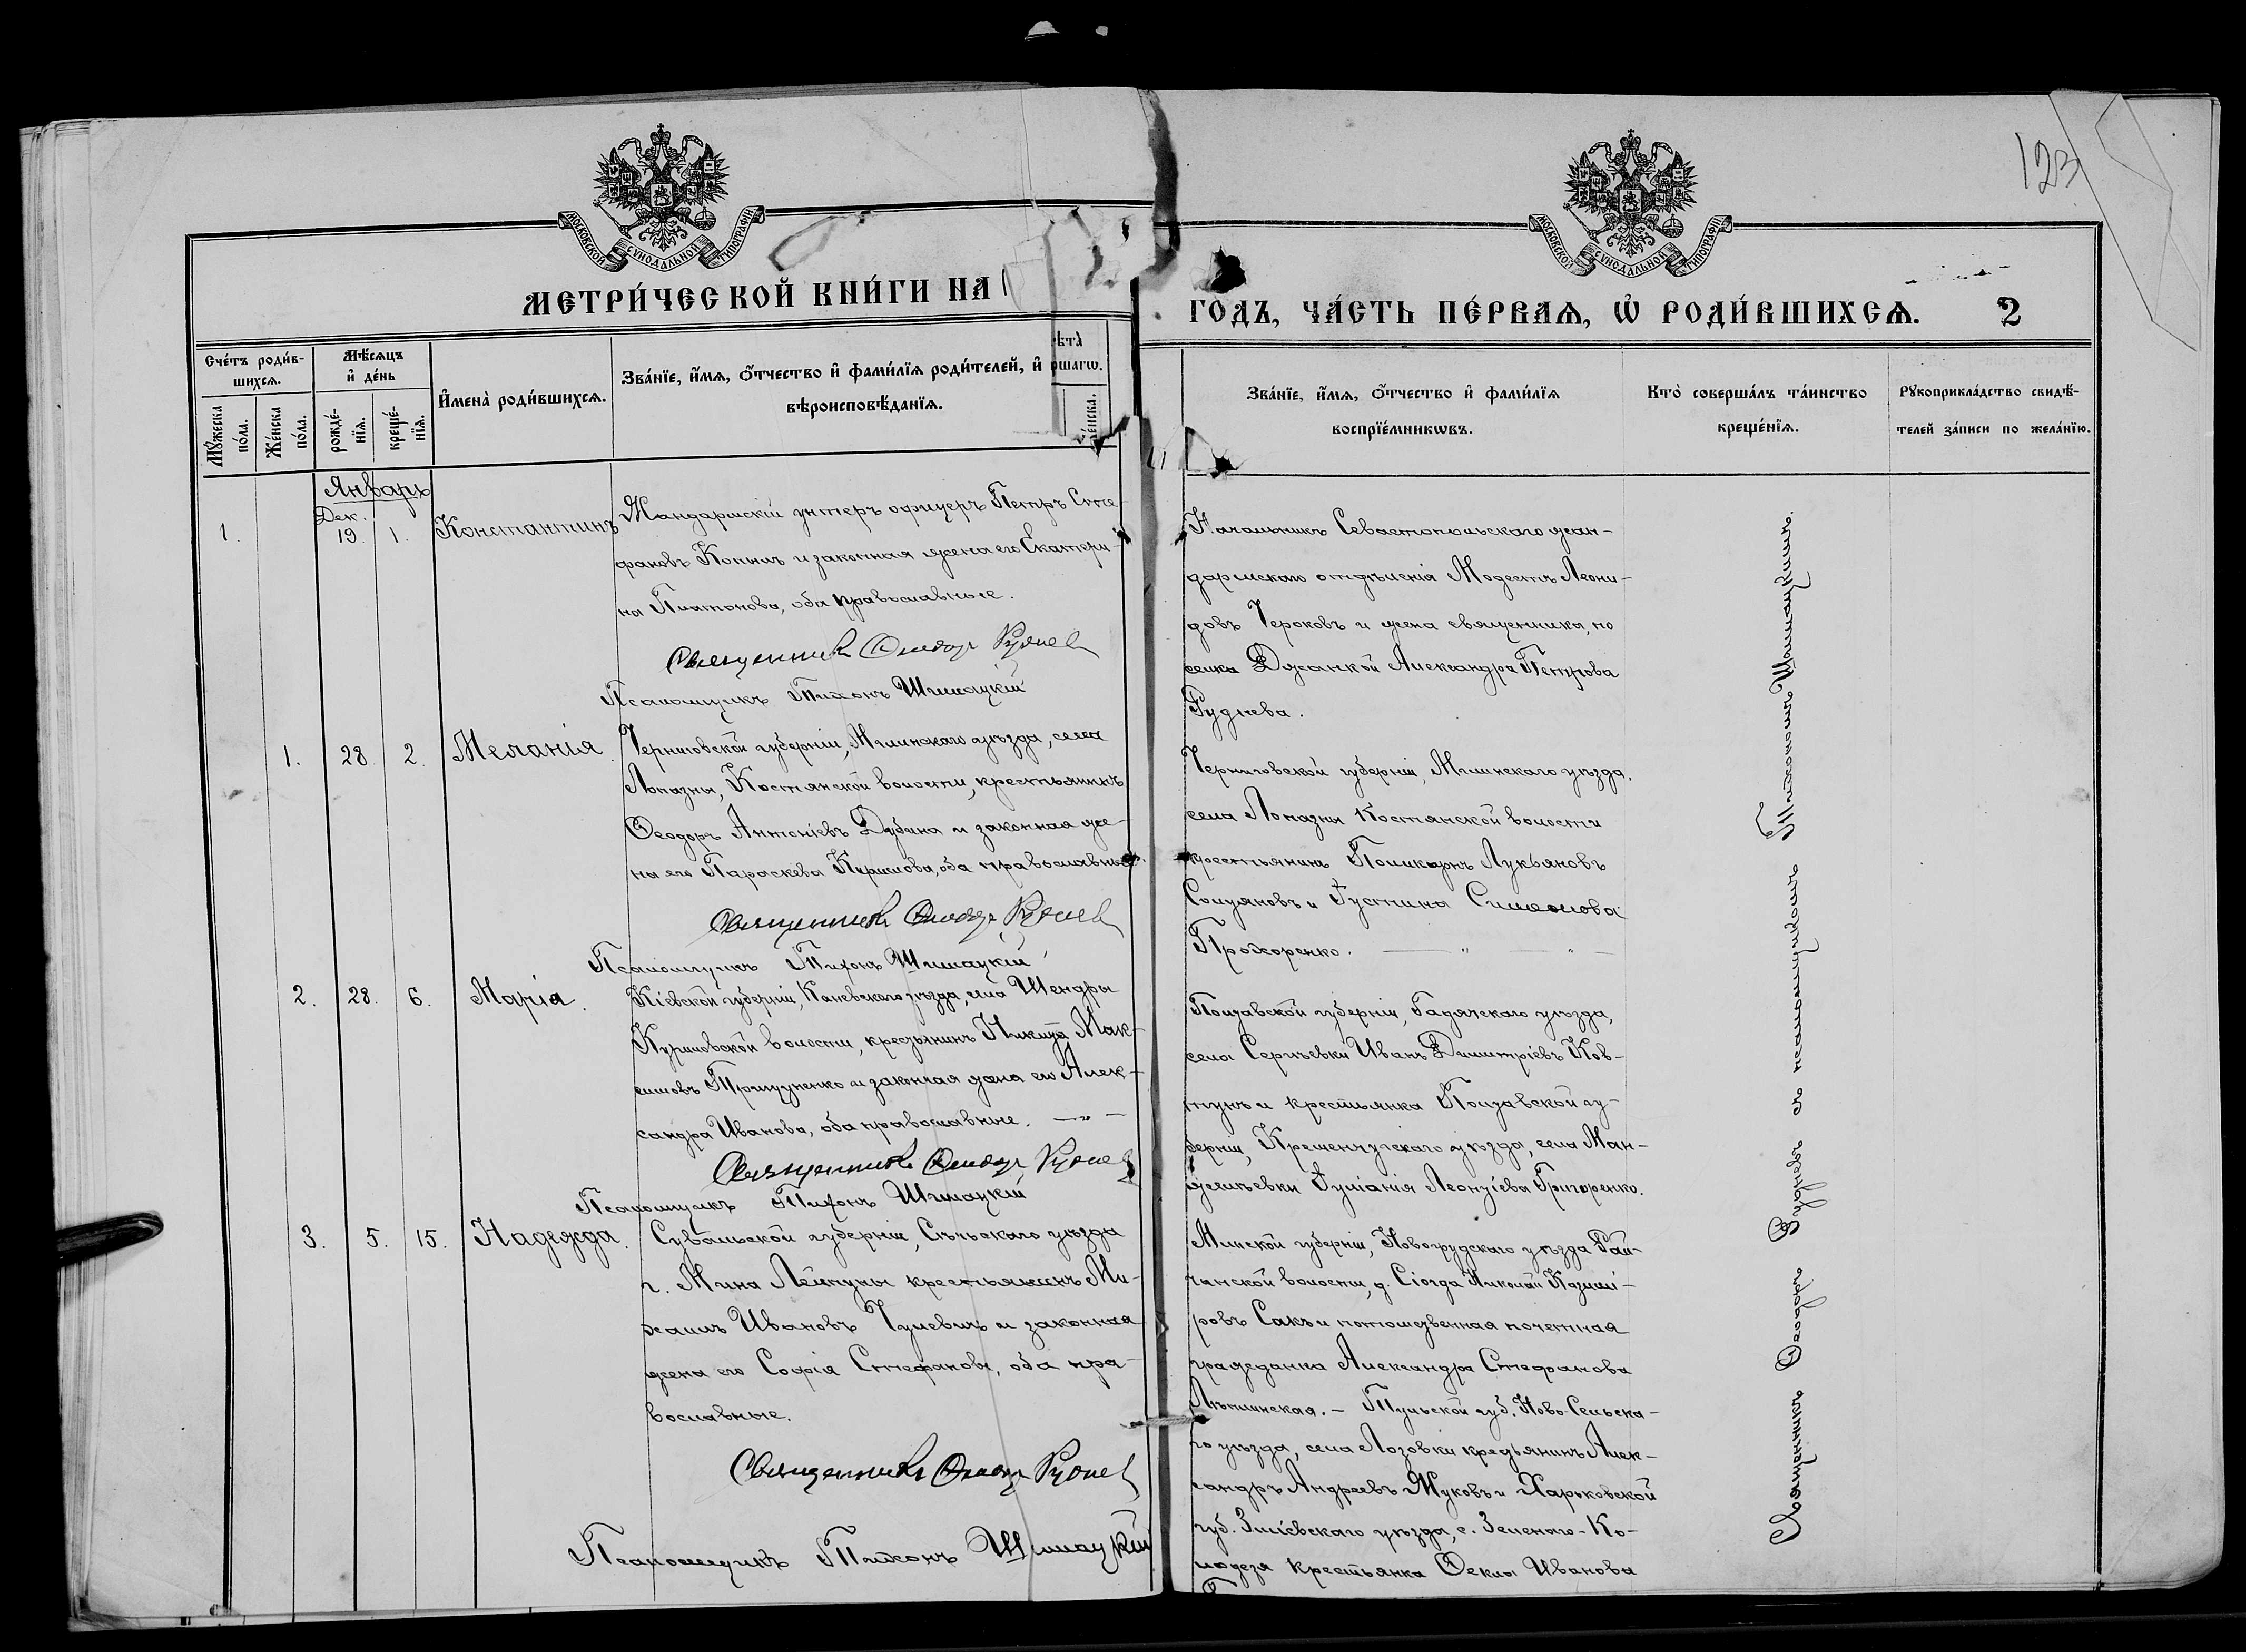 123
МОСКОВСКОЙ СѴНОДАЛЬНОЙ ТИПОГРАФІИ
МОСКОВСКОЙ СѴНОДАЛЬНОЙ ТИПОГРАФІИ
МЕТРИ́ЧЕСКОЙ КНИ́ГИ НА 1
ГОДЪ, ЧА́СТЬ ПЕ́РВАѦ, Ѡ҆ РОДИ́ВШИХСѦ. 2
Сче́тъ роди́в-
шихсѧ.
Мѣ́сѧцъ
и҆ де́нь
Мꙋ́жеска
по́ла.
Же́нска
по́ла.
рожде́-
нїѧ.
креще́-
нїѧ.
И҆мена̀ роди́вшихсѧ.
Зва́нїе, и҆́мѧ, ѻ҆́тчество и҆ фами́лїѧ роди́телей, и҆
вѣроисповѣ́данїѧ.
ѣта̀
ршагѡ.
же́нска.
Зва́нїе, и҆́мѧ, ѻ҆́тчество и҆ фами́лїѧ
воспрїе́мникѡвъ.
Кто̀ соверша́лъ та́инство
креще́нїѧ.
Рꙋкоприкла́дство свидѣ́-
телей за́писи по жела́нїю.
Январь
Дек.
1. 19. 1. Константинъ
Жандармскій унтеръ офицеръ Петръ Сте-
фановъ Копылъ и законная жена его Екатери-
на Платонова, оба православные.
Священникъ Ѳеодоръ Руднев
Псаломщикъ Тихонъ Шимацкій
Начальникъ Севастопольскаго жан-
дармскаго отдѣленія Модестъ Леони-
довъ Тероковъ и жена священника, по
селка Джанкой Александра Петрова
Руднева.
1. 28. 2. Меланія.
Черниговской губерніи, Мглинскаго уѣзда, села
Лопазны, Костянской волости, крестьянинъ
Ѳеодоръ Антоніевъ Дубина и законная же-
на его Параскева Кириллова, оба православные.
Священникъ Ѳеодоръ Руднев
Псаломщикъ Тихонъ Шимацкій
Черниговской губерніи, Мглинскаго уѣзда,
села Лопазны Костянской волости
крестьянинъ Поликарпъ Лукьяновъ
и Іустина Симеонова
Прохоренко.
2. 28. 6. Марія.
Кіевской губерніи, Каневскаго уѣзда, села Шендры
волости, крестьянинъ Никита Мак-
симовъ и законная жена его Алек-
сандра Иванова, оба православные.
Священникъ Ѳеодоръ Руднев
Псаломщикъ Тихонъ Шимацкій
Полтавской губерніи, Гадячскаго уѣзда,
села Сергѣевки Иванъ Димитріевъ Ков-
тунъ и крестьянка Полтавской гу-
берніи, Кременчугскаго уѣзда, села Ман-
желѣевки Іуліанія Григоренко.
3. 5. 15. Надежда.
Сувалкской губерніи, уѣзда
г. Мина Лейпуны крестьянинъ Ми-
хаилъ Ивановъ и законная
жена его Софія Стефанова, оба пра-
вославные.
Священникъ Ѳеодоръ Руднев
Псаломщикъ Тихонъ Шимацкій
Минской губерніи, Новогрудскаго уѣзда Рай-
чанской волости, д. Николай Казими-
ровъ Сакъ и потомственная почетная
гражданка Александра Стефанова
Тульской губ. Ново-Сельска-
го уѣзда, села Лозовки крестьянинъ Алек-
сандръ Андреевъ Жуковъ и Харьковской
губ. Зміевскаго уѣзда, с. Зеленаго-Ко-
лодезя крестьянка Ѳекла Иванова
Священникъ Ѳеодоръ Рудневъ съ псаломщикомъ Тихономъ Шимацкимъ.